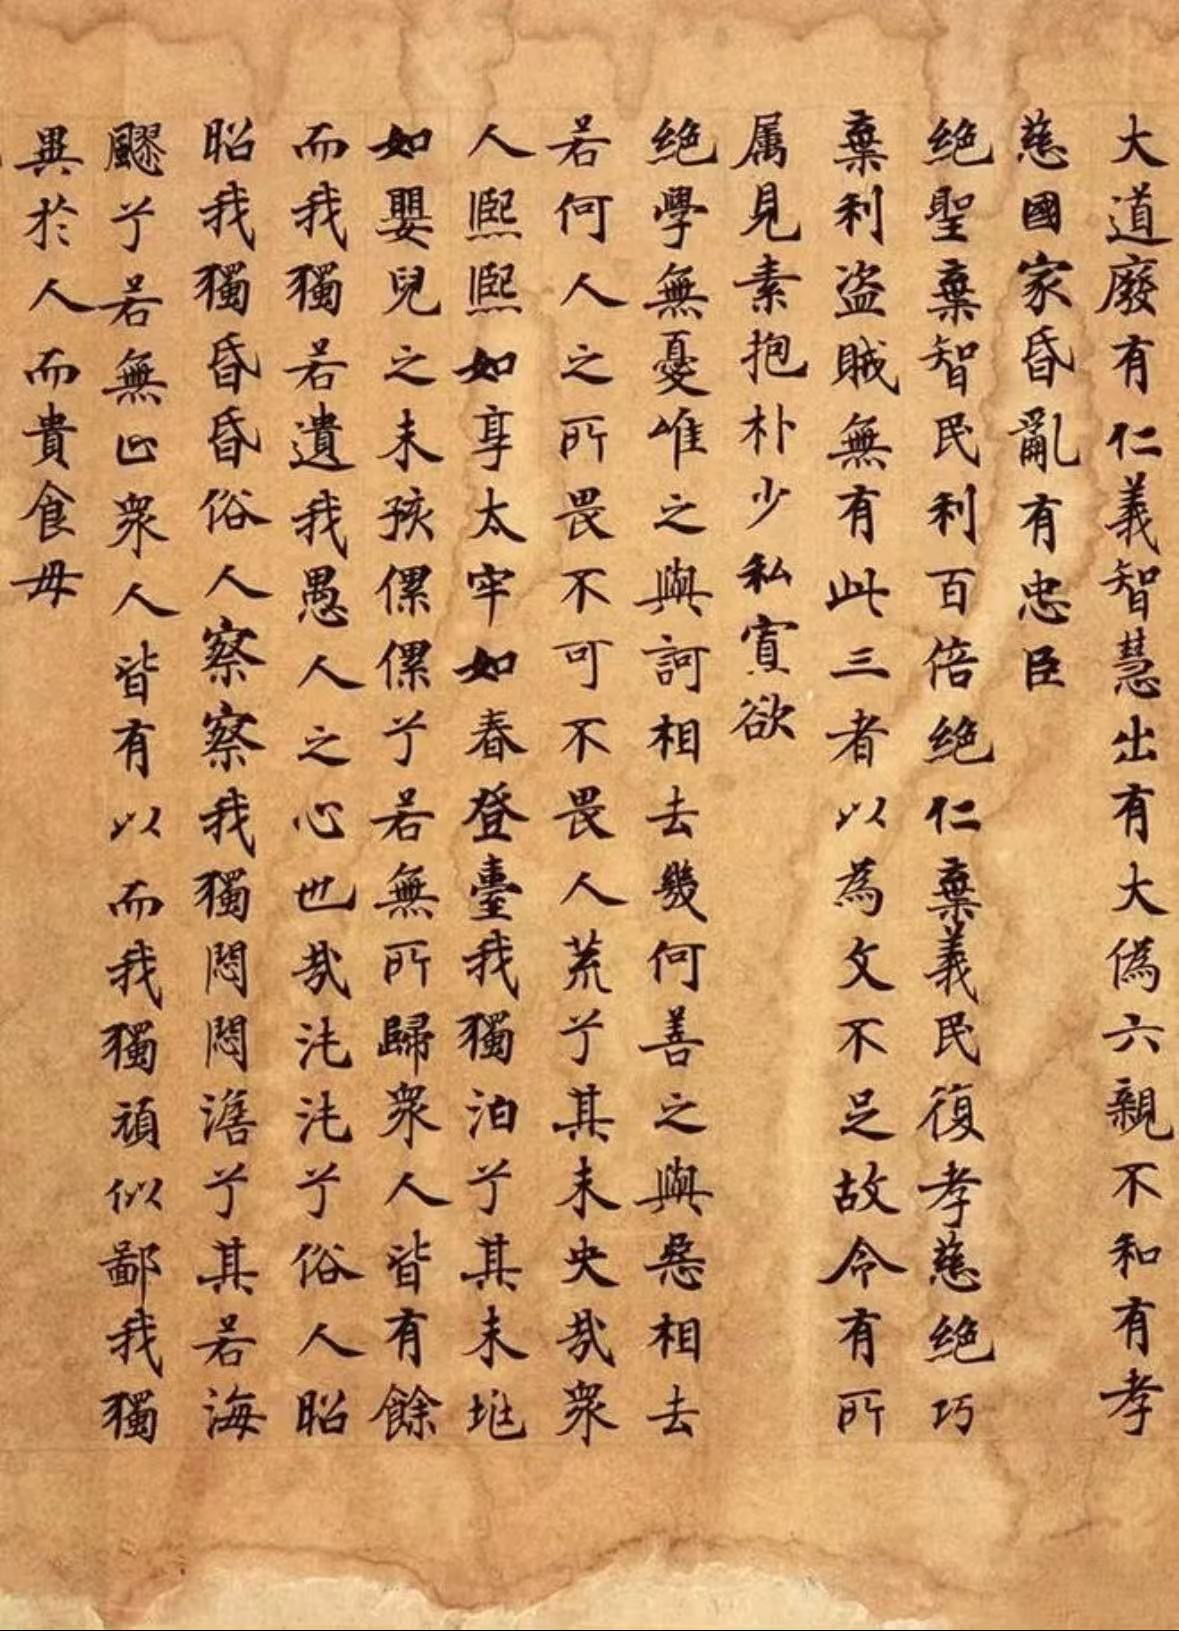 大道廢有仁義智慧出有大偽六親不和有孝
慈國家昏亂有忠臣
絕聖棄智民利百倍絕仁棄義民復孝慈絕巧
棄利盜賊無有此三者以為文不足故令有所
属見素抱朴少私寡欲
絕學無憂唯之與訶相去幾何善之與惡相去
若何人之所畏不可不畏人荒兮其未央哉眾
人熙熙如享太牢如春登臺我獨泊兮其未兆
如嬰兒之未孩儽儽兮若無所歸眾人皆有餘
而我獨若遺我愚人之心也哉沌沌兮俗人昭
昭我獨昏昏俗人察察我獨悶悶澹兮其若海
飂兮若無止眾人皆有以而我獨頑似鄙我獨
異於人而貴食母